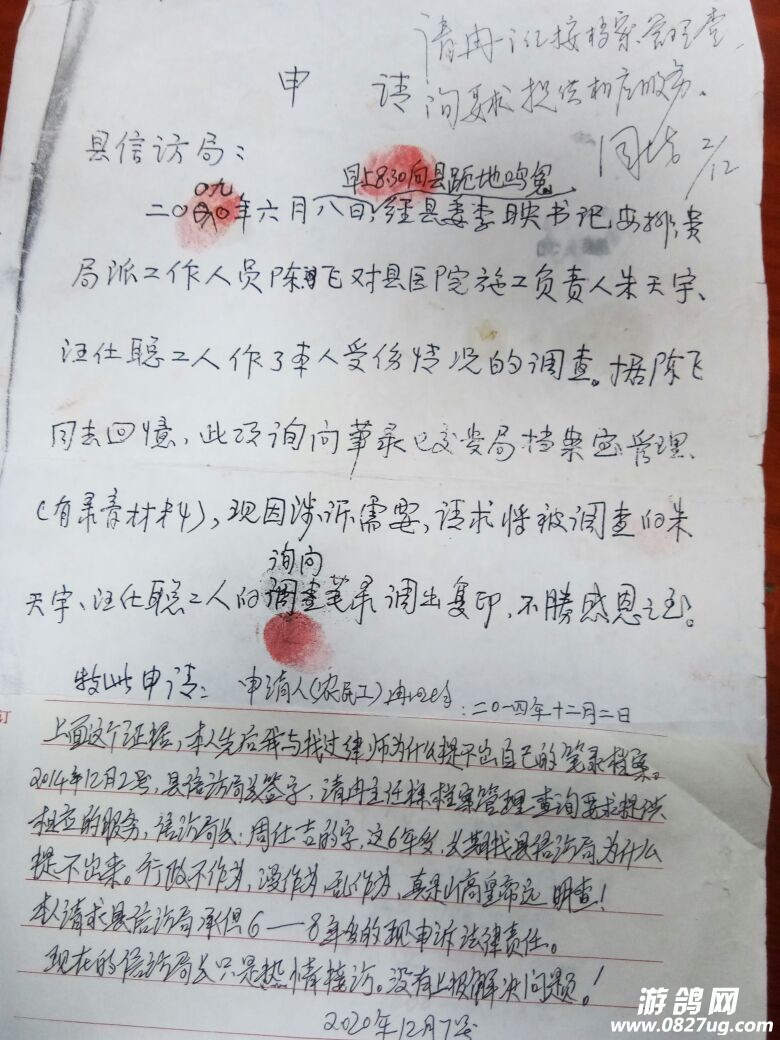 请冉主任按档案管理查
询要求提供相应服务。
2/12
申 请
县信访局：
早上8:30向县跪地鸣冤
〇九
二〇〇年六月八日，经县委李映书记安排，贵
局派工作人员陈飞对县医院施工负责人朱天宇、
汪仕聪工人作了本人受伤情况的调查。据陈飞
同志回忆，此项询问笔录已交贵局档案室管理
（有录音材料），现因涉诉需要，请求将被调查的朱
询问
天宇、汪仕聪工人的调查笔录调出复印，不勝感恩之至。
特此申请： 申请人（农民工） ：二〇一四年十二月二日
上面这个证据，本人先后我与找过律师为什么提不出自己的笔录档案。
2014年12月2号，县信访局长签字，请冉主任按档案管理查询要求提供
相应的服务，信访局长：周仕吉的字，这6年多，长期找县信访局，为什么
提不出来。行政不作为，漫作为，乱作为，真是山高皇帝远 明查！
本人请求县信访局承但6——8年多的现申诉法律责任。
现在的信访局长只是热情接访。没有上报解决问题！
2020年12月7号
订
游鸽网
www.0827ug.com